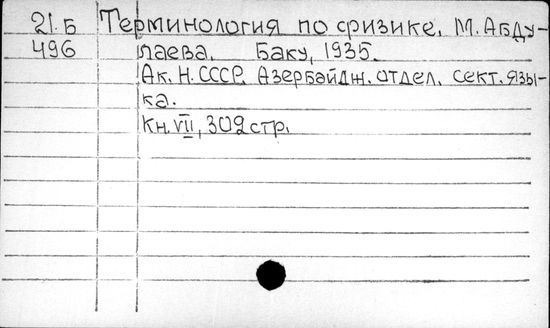 21.Б Терминология по физике. М. Абду-
496 лаева. Баку, 1935.
Ак. Н. СССР. Азербайдж. отдел. сект. язы-
ка.
Кн. VII, 302 стр.